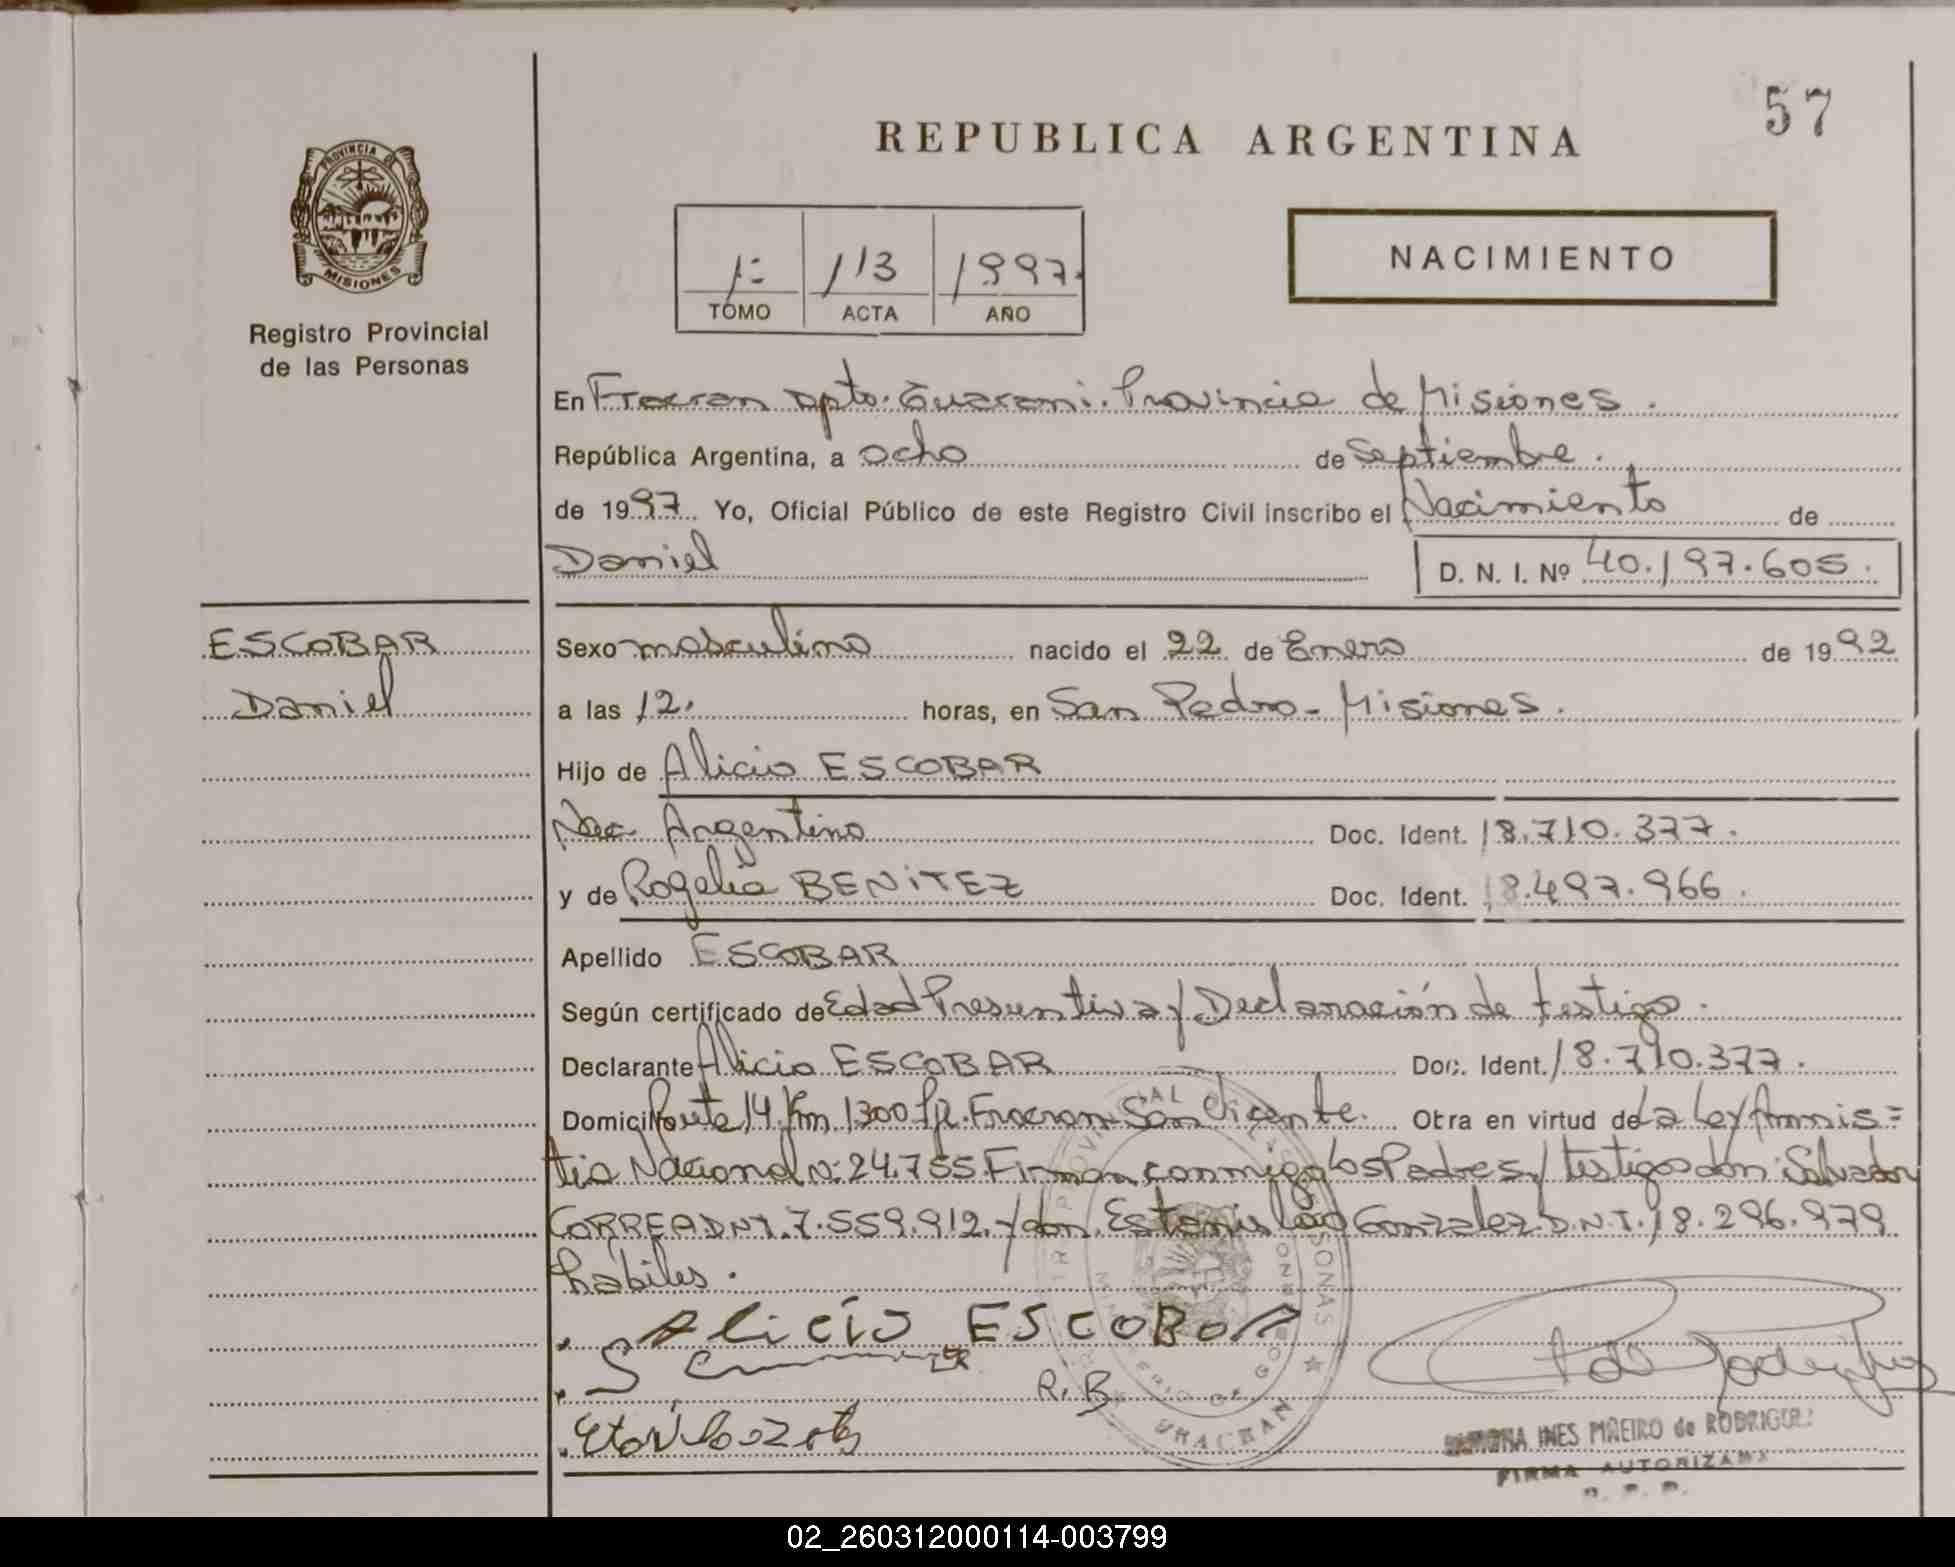 57
REPUBLICA ARGENTINA
PROVINCIA DE
MISIONES
Registro Provincial
de las Personas
1: 113 1997.
TOMO ACTA AÑO
NACIMIENTO
En Fracran Dpto. Guarani. Provincia de Misiones.
República Argentina, a ocho de Septiembre.
de 1997 Yo, Oficial Público de este Registro Civil inscribo el Nacimiento de
Daniel D. N. I. Nº 40.197.605.
ESCOBAR
Daniel
Sexo masculino nacido el 22 de Enero de 1992
a las 12. horas, en San Pedro - Misiones.
Hijo de Alicio ESCOBAR
Nac. Argentino Doc. Ident. 18.710.377.
y de Rogelia BENITEZ Doc. Ident. 18.497.966.
Apellido ESCOBAR
Según certificado de Edad Presuntiva y Declaración de testigo.
Declarante Alicio ESCOBAR Doc. Ident. 18.710.377.
Domicilio Ruta 14 Km 1300 Fracran San Vicente. Otra en virtud de La Ley Amnis=
tia Nacional Nº: 24.755 Firman conmigo los Padres y testigos don: Salvador
CORREA DNI. 7.559.912. y don. Estanislao Gonzalez D.N.I. 18.296.979
habiles.
Alicio ESCOBAR
R. B
RAMONA INES PIÑEIRO de RODRIGUEZ
FIRMA AUTORIZADA
R. P. P.
FRACRAN
02_260312000114-003799